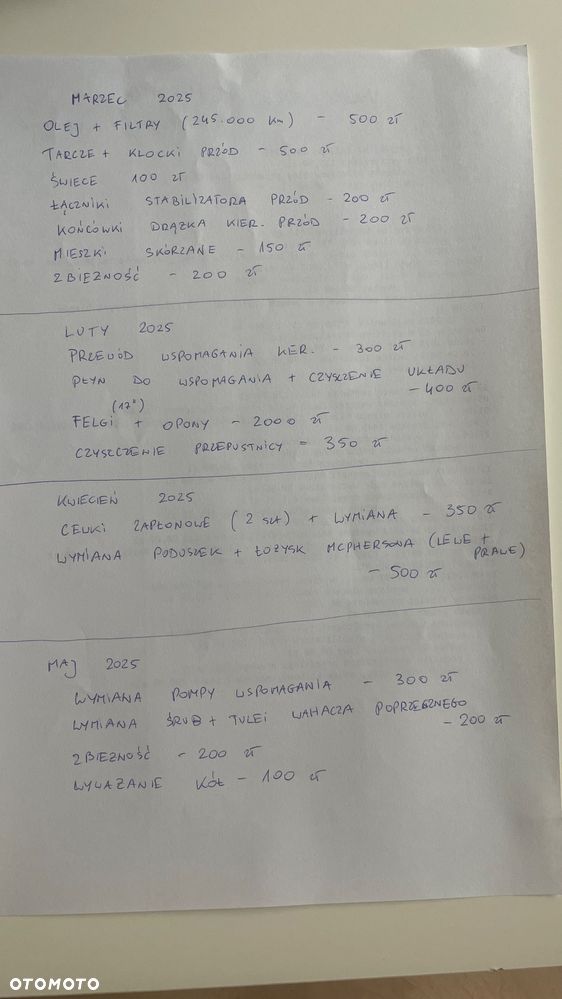 MARZEC 2025
OLEJ + FILTRY (245.000 Km) - 500 zł
TARCZE + KLOCKI PRZÓD - 500 zł
ŚWIECE 100 zł
ŁĄCZNIKI STABILIZATORA PRZÓD - 200 zł
KOŃCÓWKI DRĄŻKA KIER. PRZÓD - 200 zł
MIESZKI SKÓRZANE - 150 zł
ZBIEŻNOŚĆ - 200 zł
LUTY 2025
PRZEWÓD WSPOMAGANIA KIER. - 300 zł
PŁYN DO WSPOMAGANIA + CZYSZCZENIE UKŁADU
- 400 zł
(17")
FELGI + OPONY - 2000 zł
CZYSZCZENIE PRZEPUSTNICY = 350 zł
KWIECIEŃ 2025
CEWKI ZAPŁONOWE (2 szt) + WYMIANA - 350 zł
WYMIANA PODUSZEK + ŁOŻYSK MCPHERSONA (LEWE +
PRAWE)
- 500 zł
MAJ 2025
WYMIANA POMPY WSPOMAGANIA - 300 zł
WYMIANA ŚRUB + TULEI WAHACZA POPRZECZNEGO
- 200 zł
ZBIEŻNOŚĆ - 200 zł
WYWAŻANIE KÓŁ - 100 zł
OTOMOTO